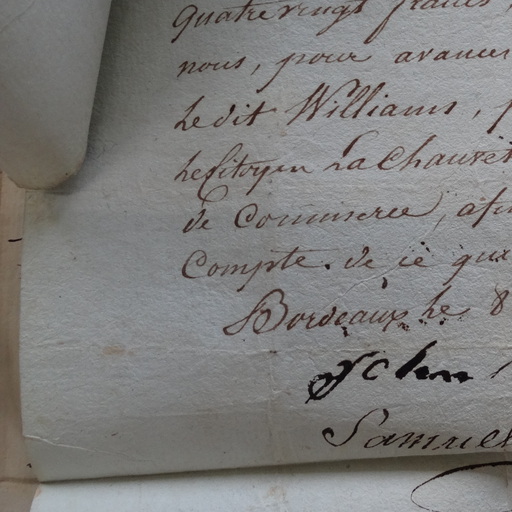 quatre vingt francs,
nous, pour avances
le dit Williams,
le Citoyen La Chauvet
de Commerce, afin
Compte de ce que
Bordeaux le 8
John
Samuel